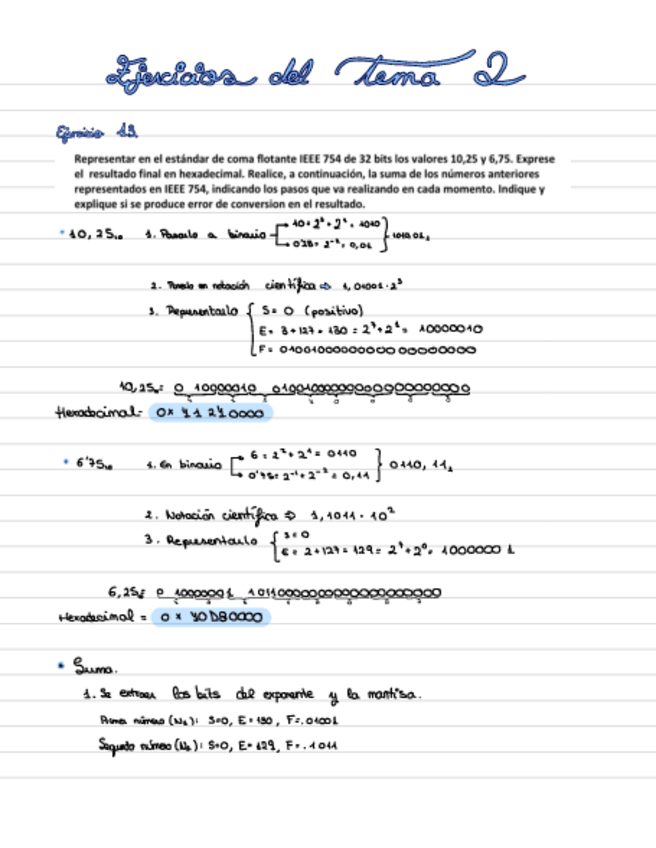 Ejercicios del Tema 2
Ejercicio 13
Representar en el estándar de coma flotante IEEE 754 de 32 bits los valores 10,25 y 6,75. Exprese
el resultado final en hexadecimal. Realice, a continuación, la suma de los números anteriores
representados en IEEE 754, indicando los pasos que va realizando en cada momento. Indique y
explique si se produce error de conversion en el resultado.
10,25₁₀ 1. Pasarlo a binario
10 = 2³ + 2¹ = 1010
0'25 = 2⁻² = 0,01
1010,01₂
2. Ponerlo en notación científica ⇒ 1,01001·2³
3. Representarlo
S = 0 (positivo)
E = 3+127 = 130 = 2⁷+2¹ = 10000010
F = 01001000000000000000000
10,25₁₀ = 0 10000010 01001000000000000000000
Hexadecimal = 0x 41240000
6'75₁₀ 1. En binario
6 = 2² + 2¹ = 0110
0'75 = 2⁻¹ + 2⁻² = 0,11
0110,11₂
2. Notación científica ⇒ 1,1011 · 10²
3. Representarlo
S = 0
E = 2+127 = 129 = 2⁷+2⁰ = 10000001
6,25 = 0 10000001 10110000000000000000000
Hexadecimal = 0x 40D80000
Suma.
1. Se extraen los bits del exponente y la mantisa.
Primer número (N₁): S=0, E=130, F=.01001
Segundo número (N₂): S=0, E=129, F=.1011